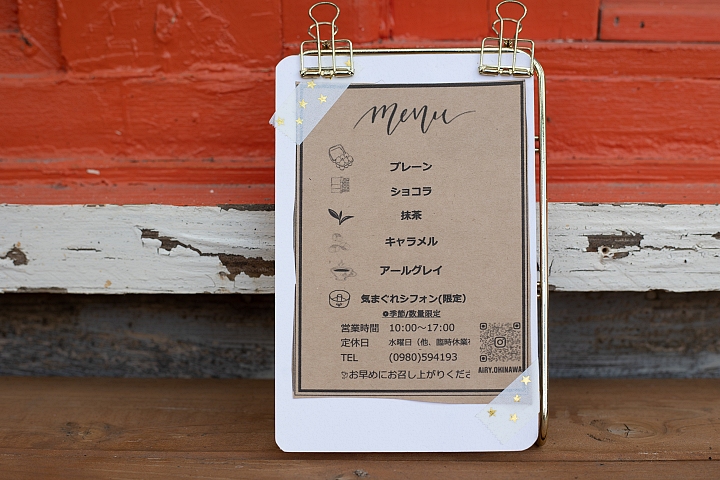 menu
プレーン
ショコラ
抹茶
キャラメル
アールグレイ
気まぐれシフォン(限定)
❁季節/数量限定
営業時間 10:00～17:00
定休日 水曜日（他、臨時休業有
TEL (0980)594193
お早めにお召し上がりくださ
AIRY.OKINAWA